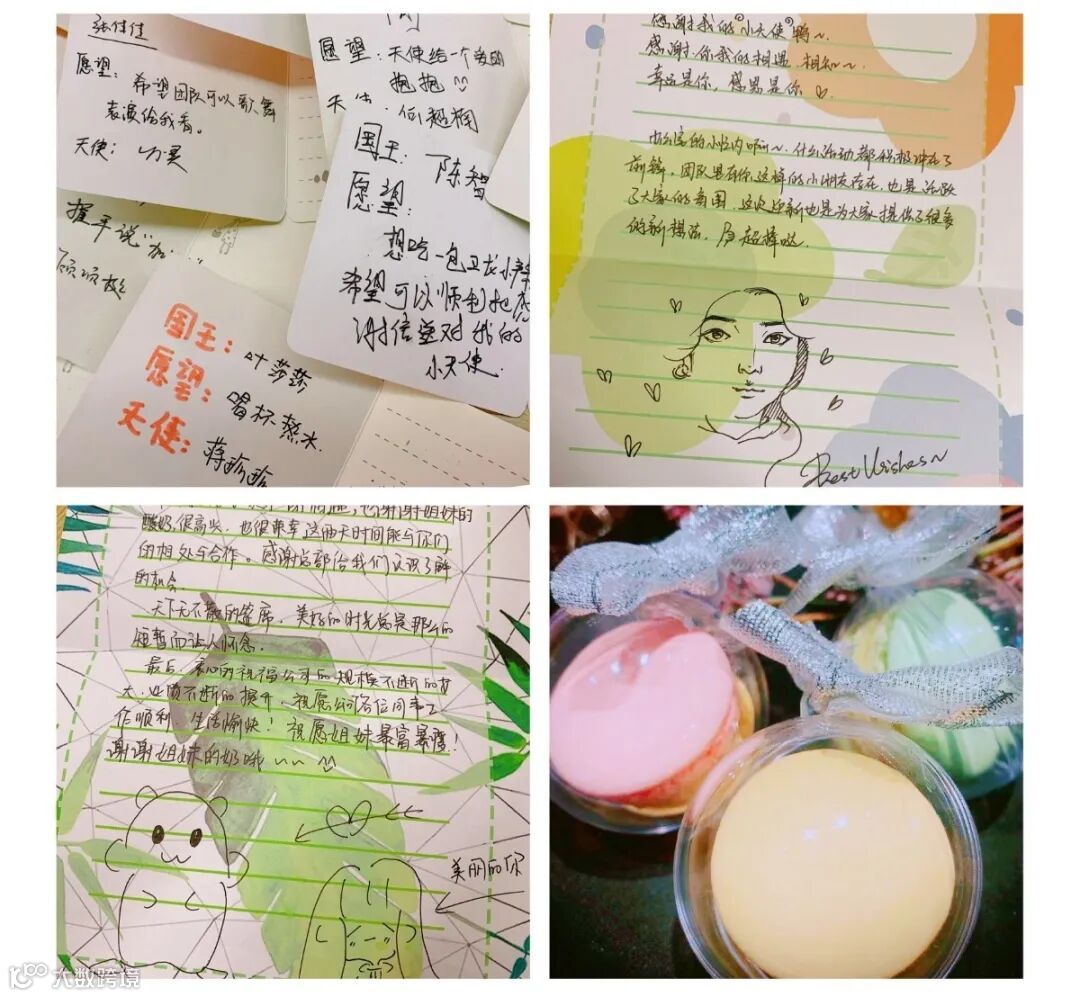 张佳佳
愿望：希望团队可以歌舞
表演给我看。
天使：
愿望：天使给一个爱的
抱抱
天使
国王：陈智
愿望：
想吃一包卫龙小辣
希望可以顺利把感
谢信送对我的
小天使.
握手说"加
国王：叶莎莎
愿望：喝杯热水.
天使：蒋珍珍
感谢我的"小天使"鸭~
感谢你我的相遇.相知~~
幸运是你，感恩是你
什么活动都积极冲在了
前锋，团队里有你这样的小朋友存在，也是活跃
了大家的氛围，这次迎新也是为大家提供了很多
的新想法，超棒哒
Best Wishes~
也谢谢姐妹的
酸奶很高兴，也很荣幸这两天时间能与你们
的相处与合作。感谢总部给我们认识了解
的机会.
天下无不散的宴席，美好的时光总是那么的
短暂而让人怀念.
最后，衷心的祝福公司的规模不断的扩
大，业绩不断的攀升，祝愿公司各位同事工
作顺利，生活愉快！祝愿姐妹暴富暴瘦！
谢谢姐妹的奶哦~~
美丽的你
大数跨境